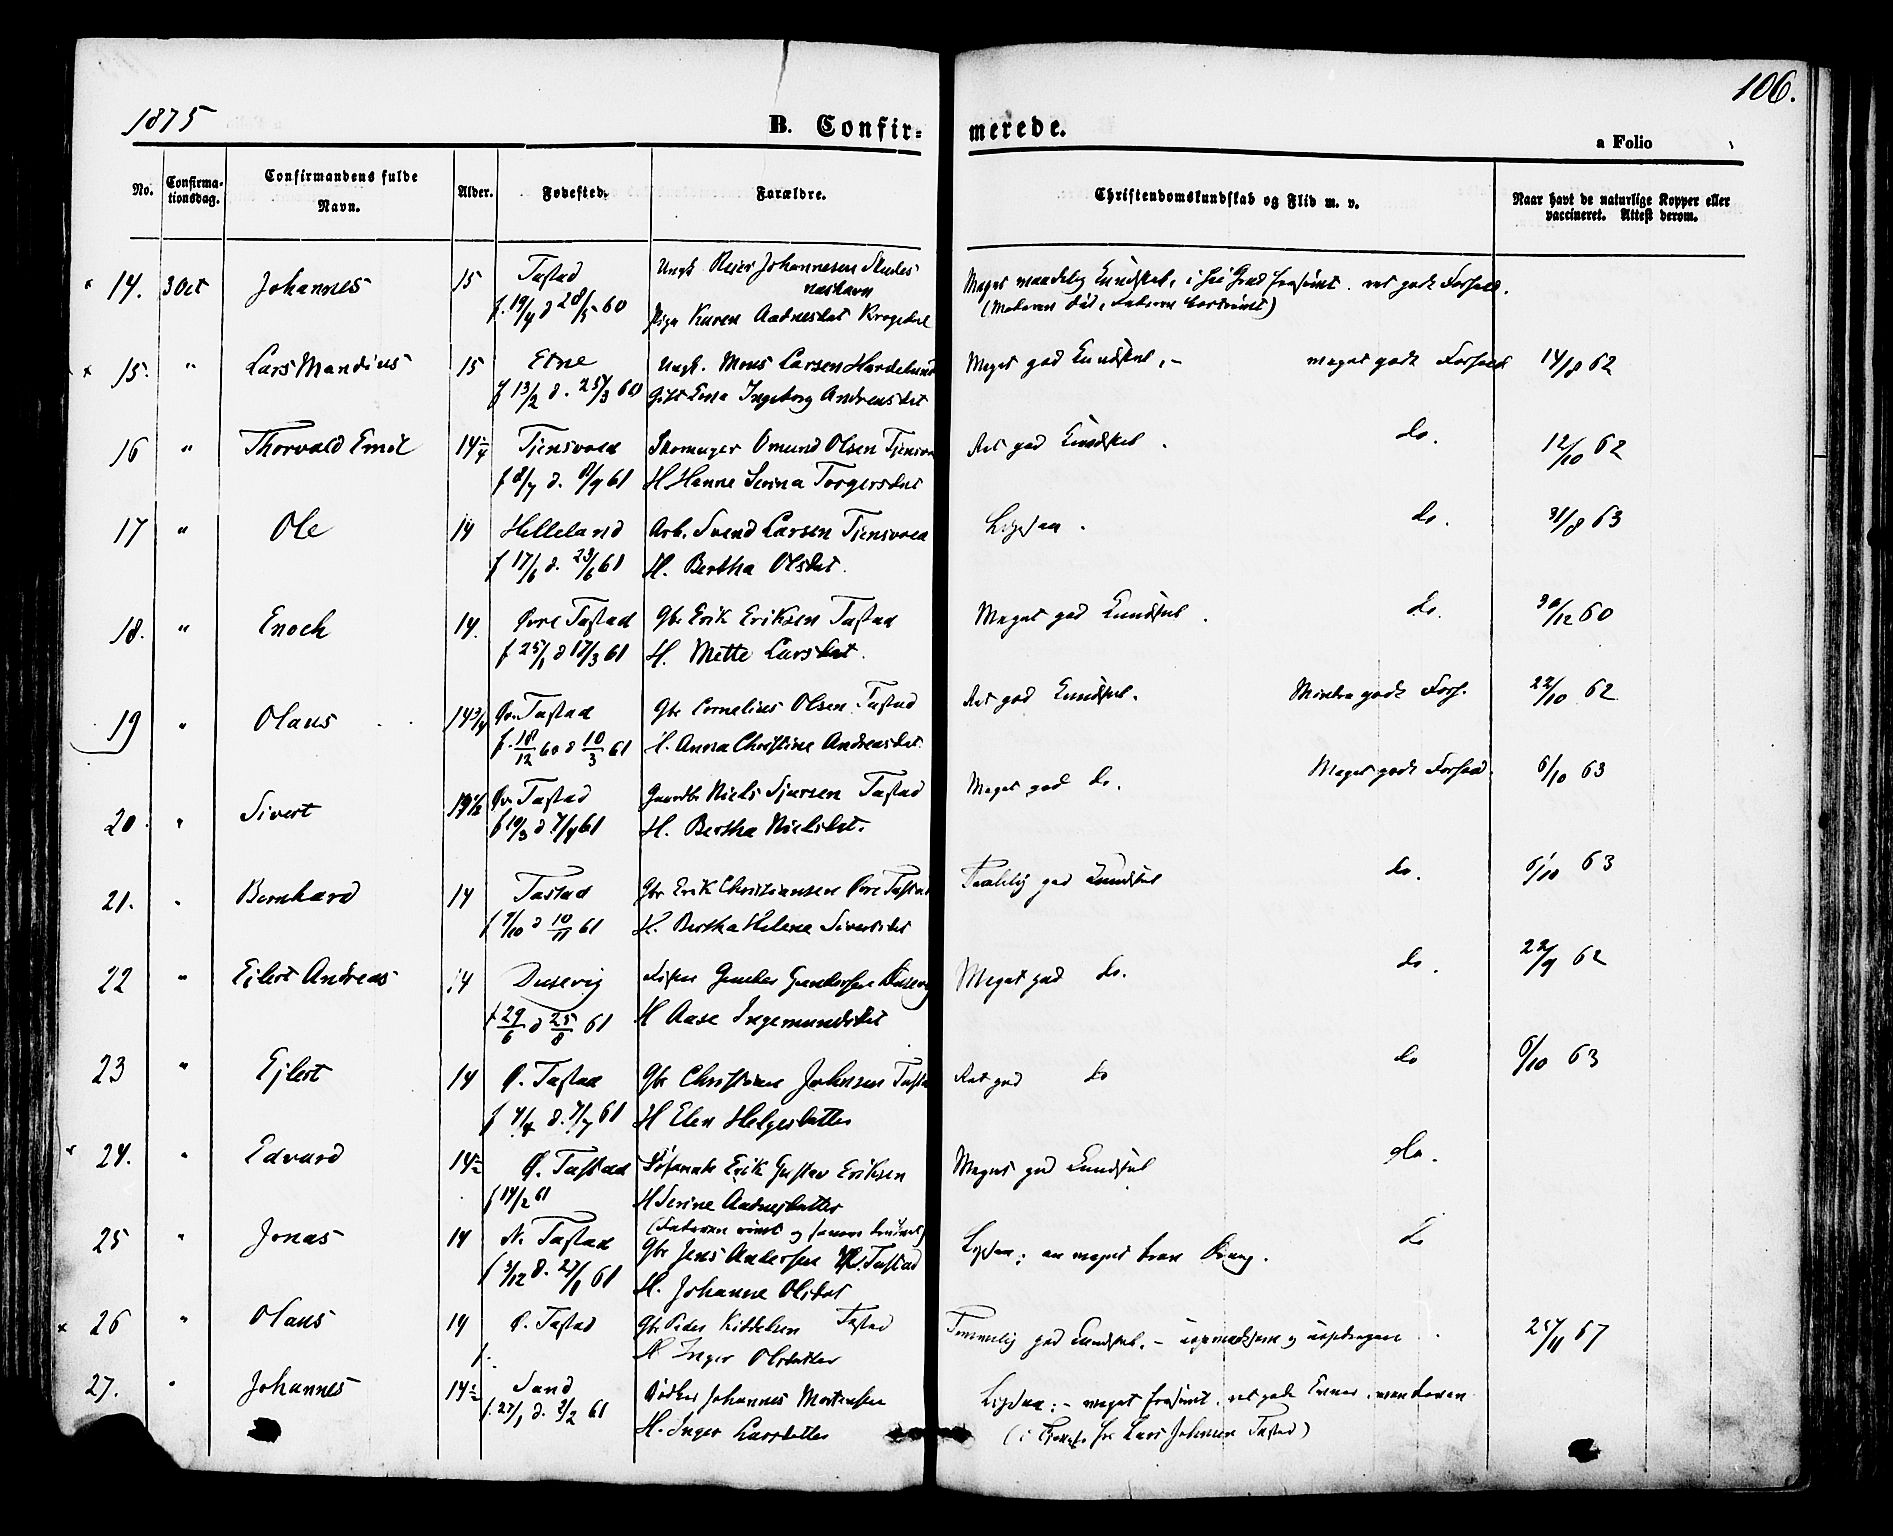 106.
1875
B. Confir- merede.
a Folio
No. Confirma-tionsdag. Confirmandens fulde Navn. Alder. Fødested. Forældre. Christendomskundskab og Flid m. v. Naar havt de naturlige Kopper eller vaccineret. Attest derom.
14. 3 Oct Johannes 15 Tastad Ungk Johannesen Skudes
f. 19/4 d 28/5 60 Pige Karen Aadnesdat
15. " Lars Mandius 15 Etne Ungk. Mons Larsen Hordelund Meget god Kundskab, - meget godt Forhold 14/8 62
f 13/2 d. 25/3 60 Ingeborg Andreasdat
16 " Thorvald Emil 14 1/4 Tjensvold Skomager Omund Olsen Ret god Kundskab. do. 12/10 62
f 8/7 d. 8/9 61 H Hanne Serina Torgersdat
17 " Ole 14 Helleland Arb. Svend Larsen Tjensvold Ligesaa. do. 31/8 63
f 17/6 d. 23/6 61 H. Bertha Olsdat.
18. " Enoch 14. Øvre Tastad Gbr Erik Eriksen Tastad Meget god Kundskab. do. 30/12 60
f 25/1 d 17/3 61 H. Mette Larsdat.
19 " Olaus 14 3/4 Øvr Tastad Gbr Cornelius Olsen Tastad Ret god Kundskab. Mindre godt Forh. 22/10 62
f. 18/12 60 d 10/3 61 H. Anna Christine Andreasdat.
20. " Sivert 14 1/2 Øv. Tastad Gaardbr Niels Sjursen Tastad Meget god do. Meget godt Forhold. 6/10 63
f 10/3 d. 7/4 61 H. Bertha Nielsdat.
21. " Bernhard 14 Tastad Gbr Erik Christiansen Øvre Tastad god Kundskab do. 6/10 63
f 7/10 d 10/11 61 H. Bertha Helene Siversdat
22 " Ejlert Andreas 14 Dusevig Gunder Gundersen Dusevig Meget god do. do. 22/9 62
f 29/6 d 25/8 61 H Aase Ingemundsdat
23 " Ejlert 14 Ø. Tastad Gbr Christian Johnsen Tastad Ret god do do 6/10 63
f 4/4 d. 7/7 61 H Elen Helgesdatter
24. " Edvard 14 1/2 Ø. Tastad Erik Gustav Eriksen Meget god Kundskab do.
f 14/2 61 H Serine Aadnesdatter
25 " Jonas 14 N. Tastad Gbr Jens Andersen N. Tastad Ligesaa; en meget brav Dreng. do
f 3/12 d. 27/1 61 H. Johanne Olsdat
26 " Olaus 14 Ø. Tastad Gbr Peder Kiddelsen Tastad Temmelig god Kundskab. - 25/11 67
f. H Inger Olsdatter
27. " Johannes 14 1/2 Sand Bødker Johannes Mortensen Ligesaa: - meget forsømt.
f. 27/1 d. 3/2 61 H. Inger Larsdatter Lars Johnsen Tastad)